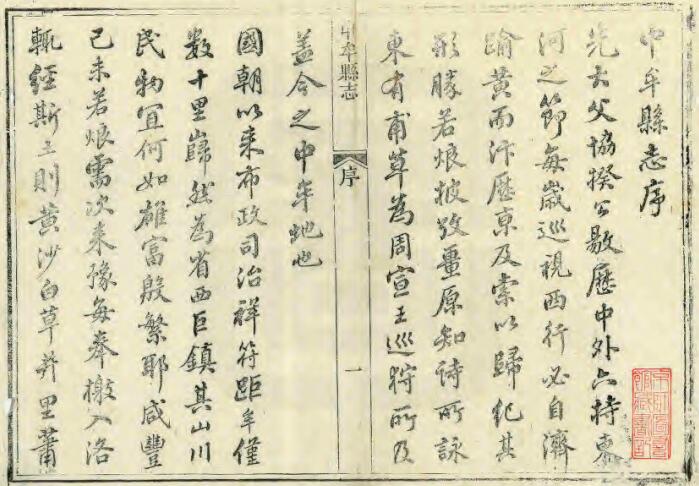 中牟縣志序
先大父協揆公敭歷中外六持東
河之節每歲巡視西行必自濟
踰黃而汴歷京及索以歸紀其
形勝若烺披攷疆原知詩所詠
東有甫草為周宣王巡狩所及
中牟縣志
序
一
盖今之中牟地也
國朝以來布政司治祥符距牟僅
數十里巋然為省西巨鎮其山川
民物宜何如雄富殷繁耶咸豐
己未若烺需次来豫每奉檄入洛
輒經斯土則黃沙白草井里蕭